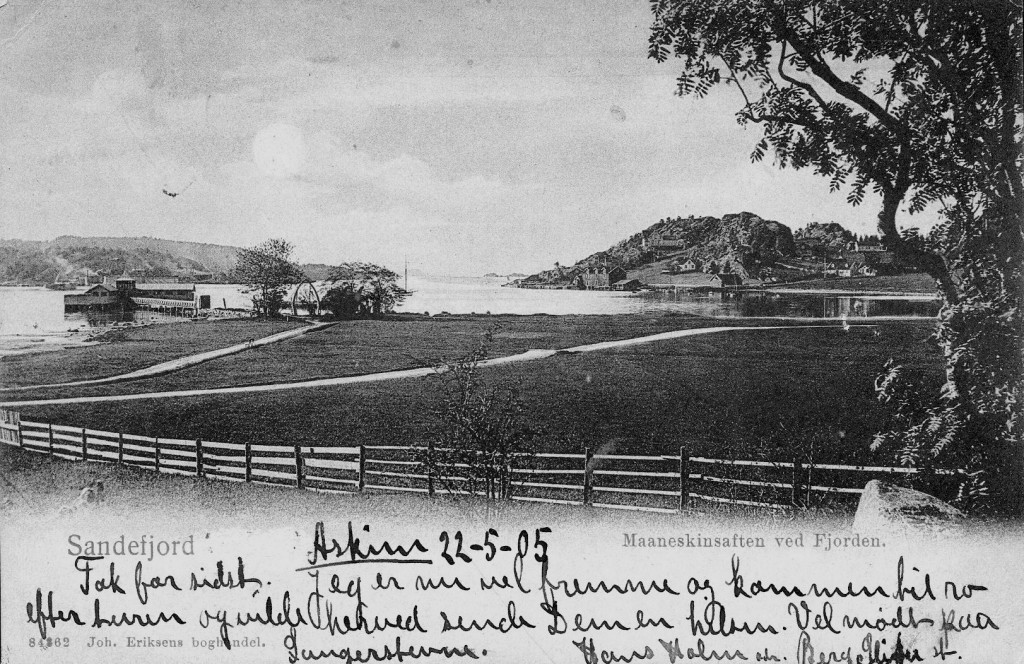 Sandefjord
Askim 22-5-05
Maaneskinsaften ved Fjorden.
Tak for sidst. Jeg er nu vel fremme og kommen til ro
efter turen og vilde herved sende Dem en hilsen. Vel mødt paa
84362 Joh. Eriksens boghandel.
Sangerstevne. Hans Holm